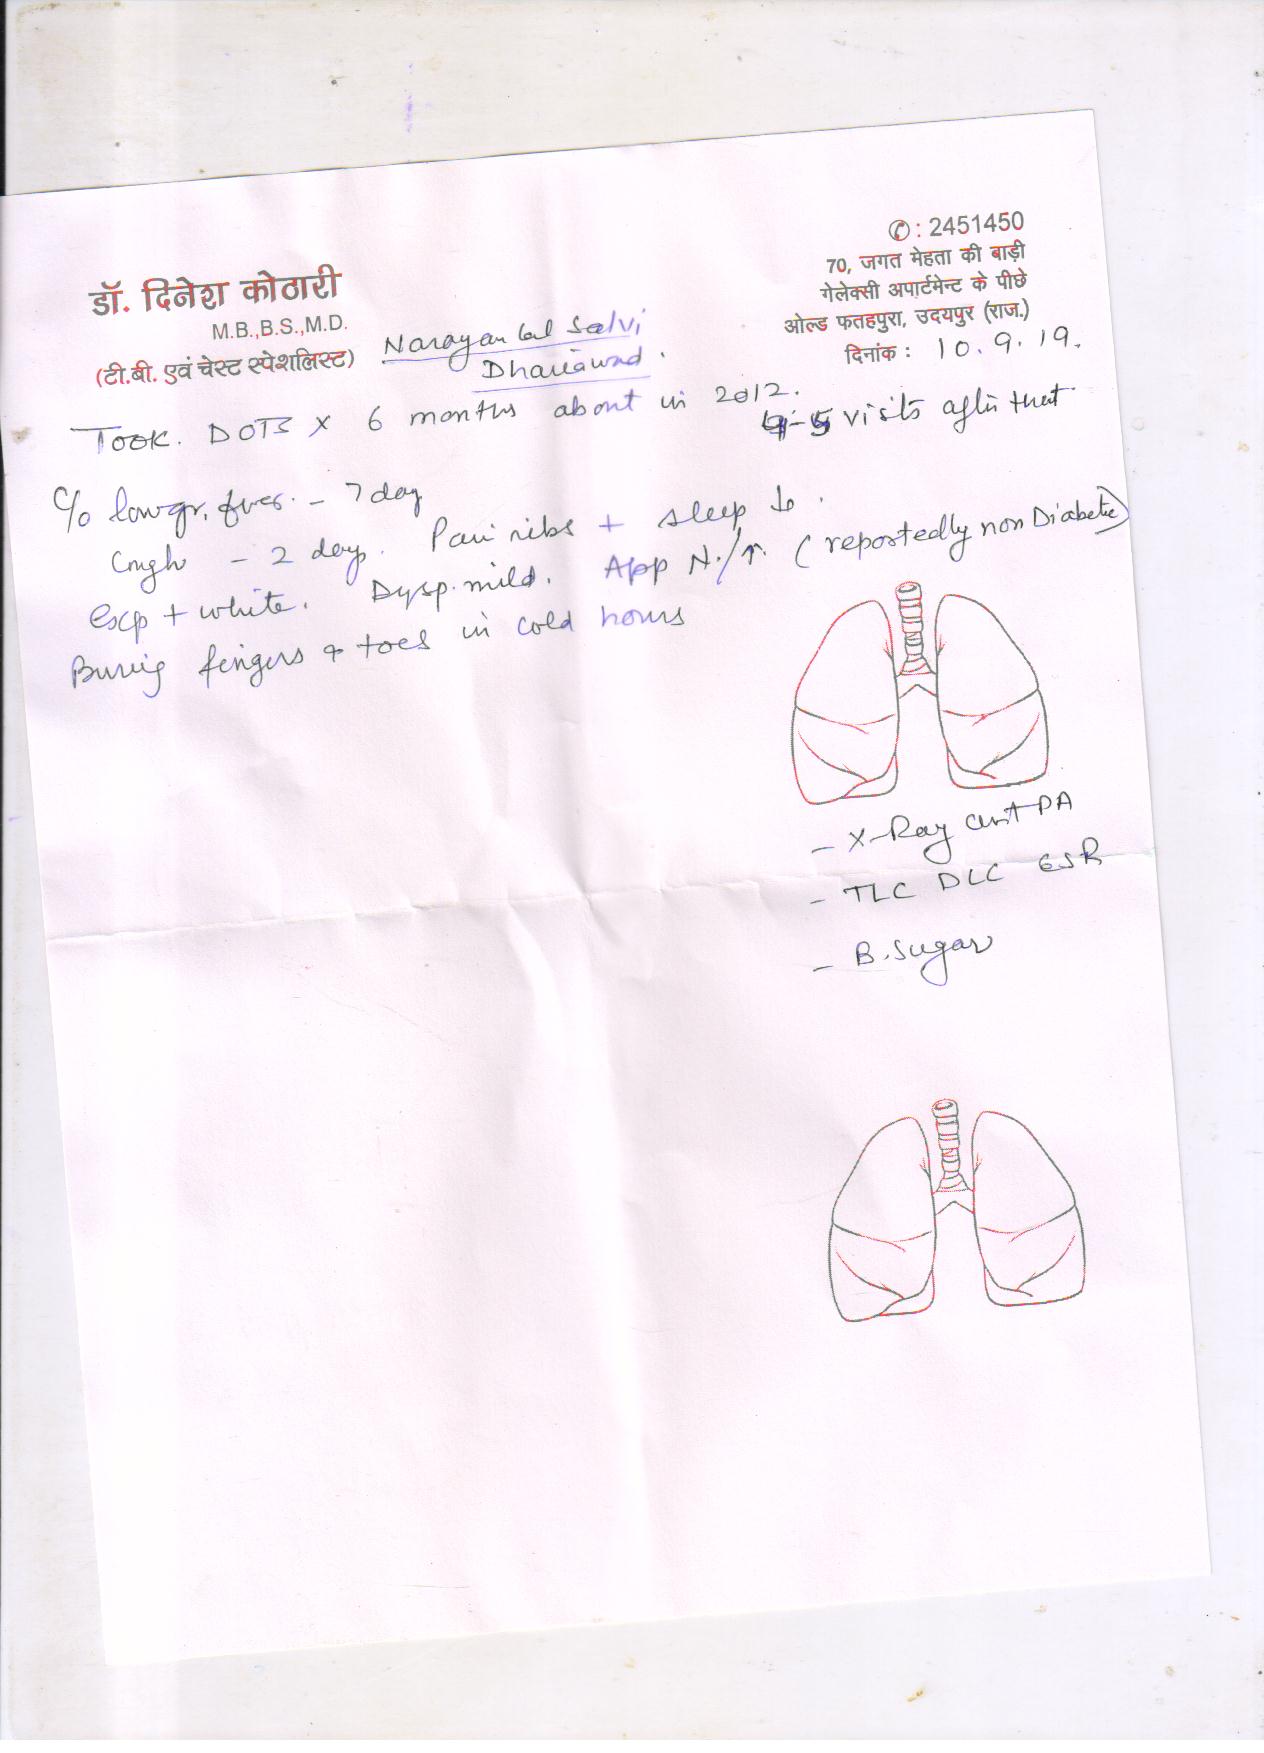 ✆ : 2451450
70, जगत मेहता की बाड़ी
गेलेक्सी अपार्टमेन्ट के पीछे
ओल्ड फतहपुरा, उदयपुर (राज.)
दिनांक : 10.9.19.
डॉ. दिनेश कोठारी
M.B.,B.S.,M.D.
(टी.बी. एवं चेस्ट स्पेशलिस्ट)
Narayan Lal Salvi
Dhariawad.
Took. DOTS x 6 months about in 2012.
4-5 visits after that
C/o low gr. fever. - 7 day
Cough - 2 days. Pain ribs + sleep ↓.
Exp + white. Dysp. mild. App N./↑. (reportedly non Diabetic)
Burnig fingers & toes in cold hours
- X-Ray chest PA
- TLC DLC ESR
- B. Sugar